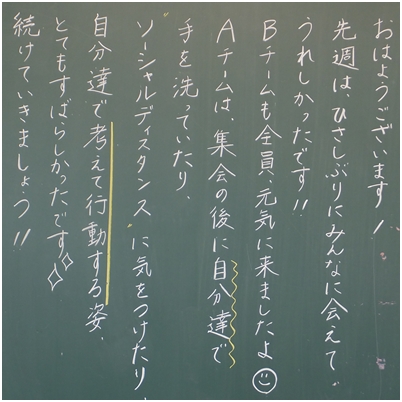 おはようございます！
先週は、ひさしぶりにみんなに会えて
うれしかったです!!
Bチームも全員、元気に来ましたよ
Aチームは、集会の後に自分達で
手を洗っていたり、
ソーシャルディスタンスに気をつけたり、
自分達で考えて行動する姿、
とてもすばらしかったです
続けていきましょう!!